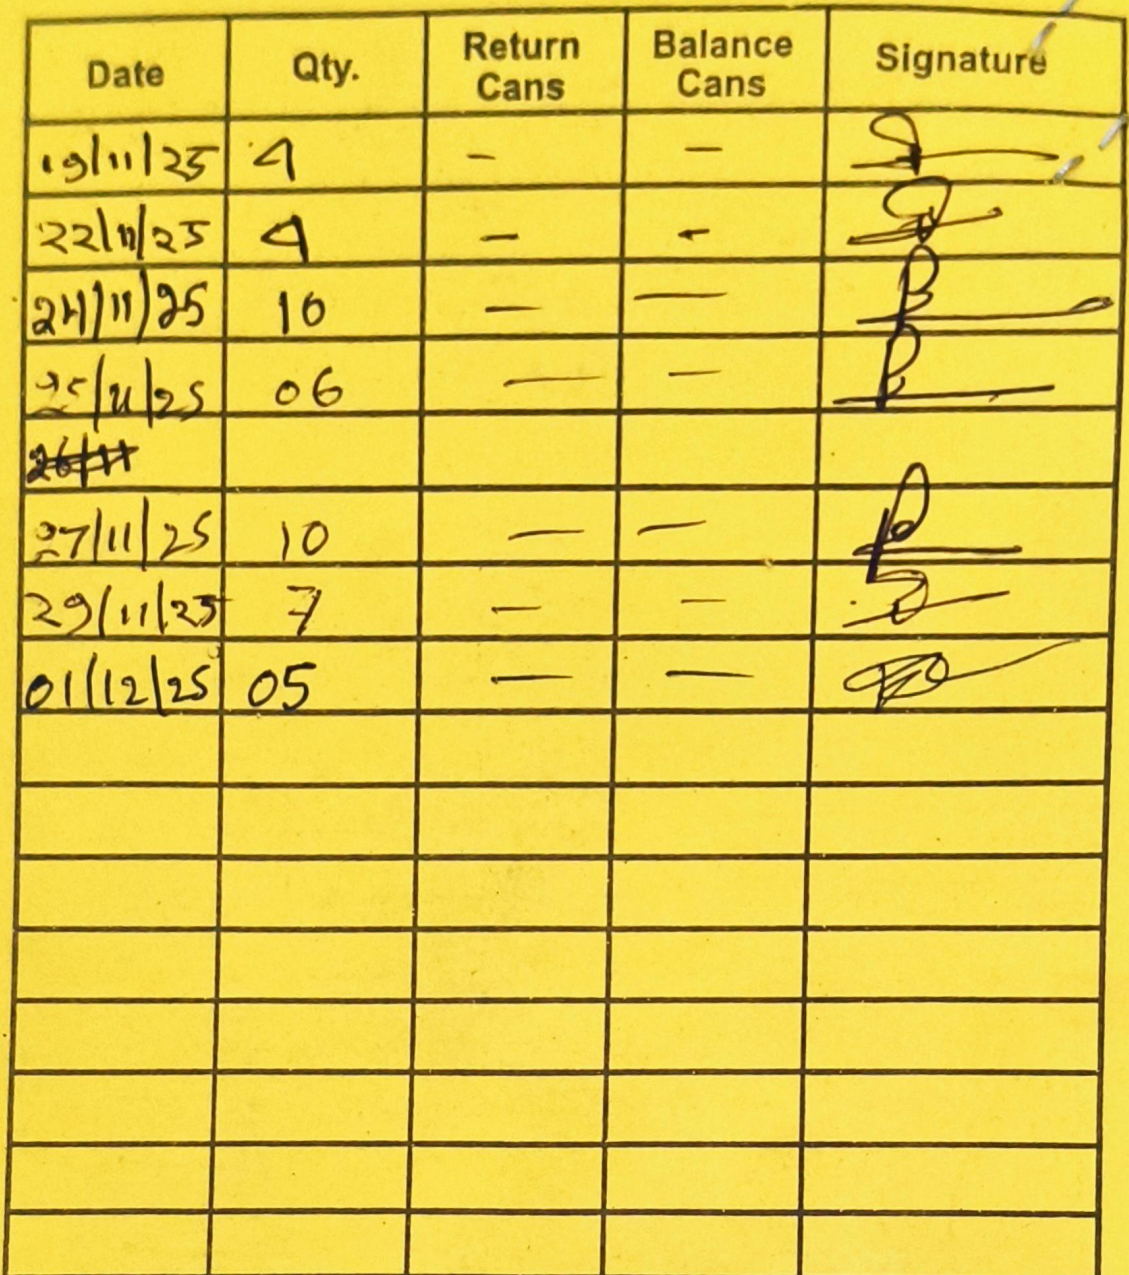 Date Qty. Return Cans Balance Cans Signature
19/11/25 4 — —
22/11/25 4 — —
24/11/25 10 — —
25/11/25 06 — —
26/11
27/11/25 10 — —
29/11/25 7 — —
01/12/25 05 — —